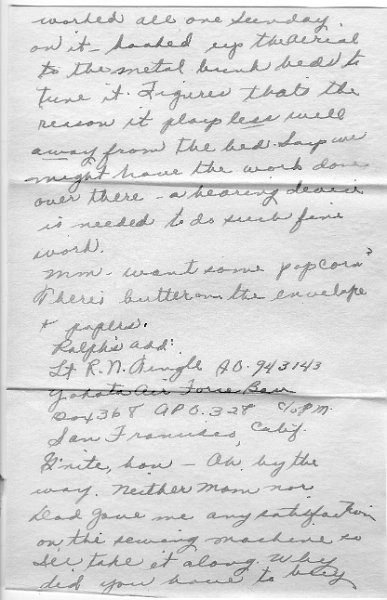 worked all one Sunday.
on it - hooked up the aerial
to the metal bunk beds to
tune it. Figures thats the
reason it plays less well
away from the bed. Says we
might have the work done
over there - a hearing device
is needed to do such fine
work.
mm - want some popcorn?
There's butter on the envelope
+ papers.
Ralph's add:
Lt R. N. AO. 943143
Yokota Air Force Base
Box 368 APO. 328 c/o P.M.
San Francisco, Calif.
G'nite, hon - Oh by the
way. Neither Mom nor
Dad gave me any satisfaction
on the sewing machine so
I'll take it along. Why
did you have to